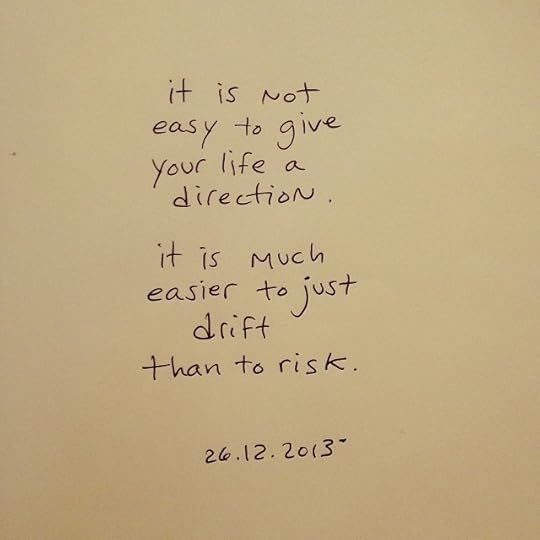 it is not
easy to give
your life a
direction.
it is much
easier to just
drift
than to risk.
26.12.2013